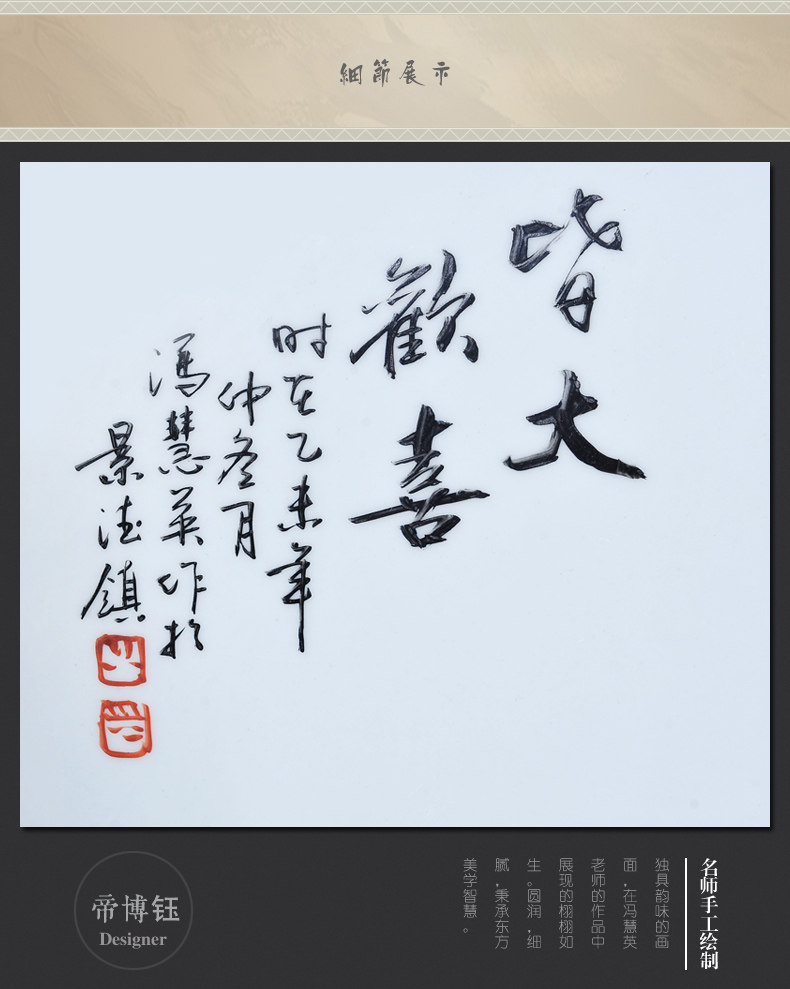 細節展示
皆大
歡喜
时在乙未年
仲冬月
冯慧英作於
景德鎮
名师手工绘制
独具韵味的画
面,在冯慧英
老师的作品中
展现的栩栩如
生。圆润,细
腻,秉承东方
美学智慧。
帝博钰
Designer